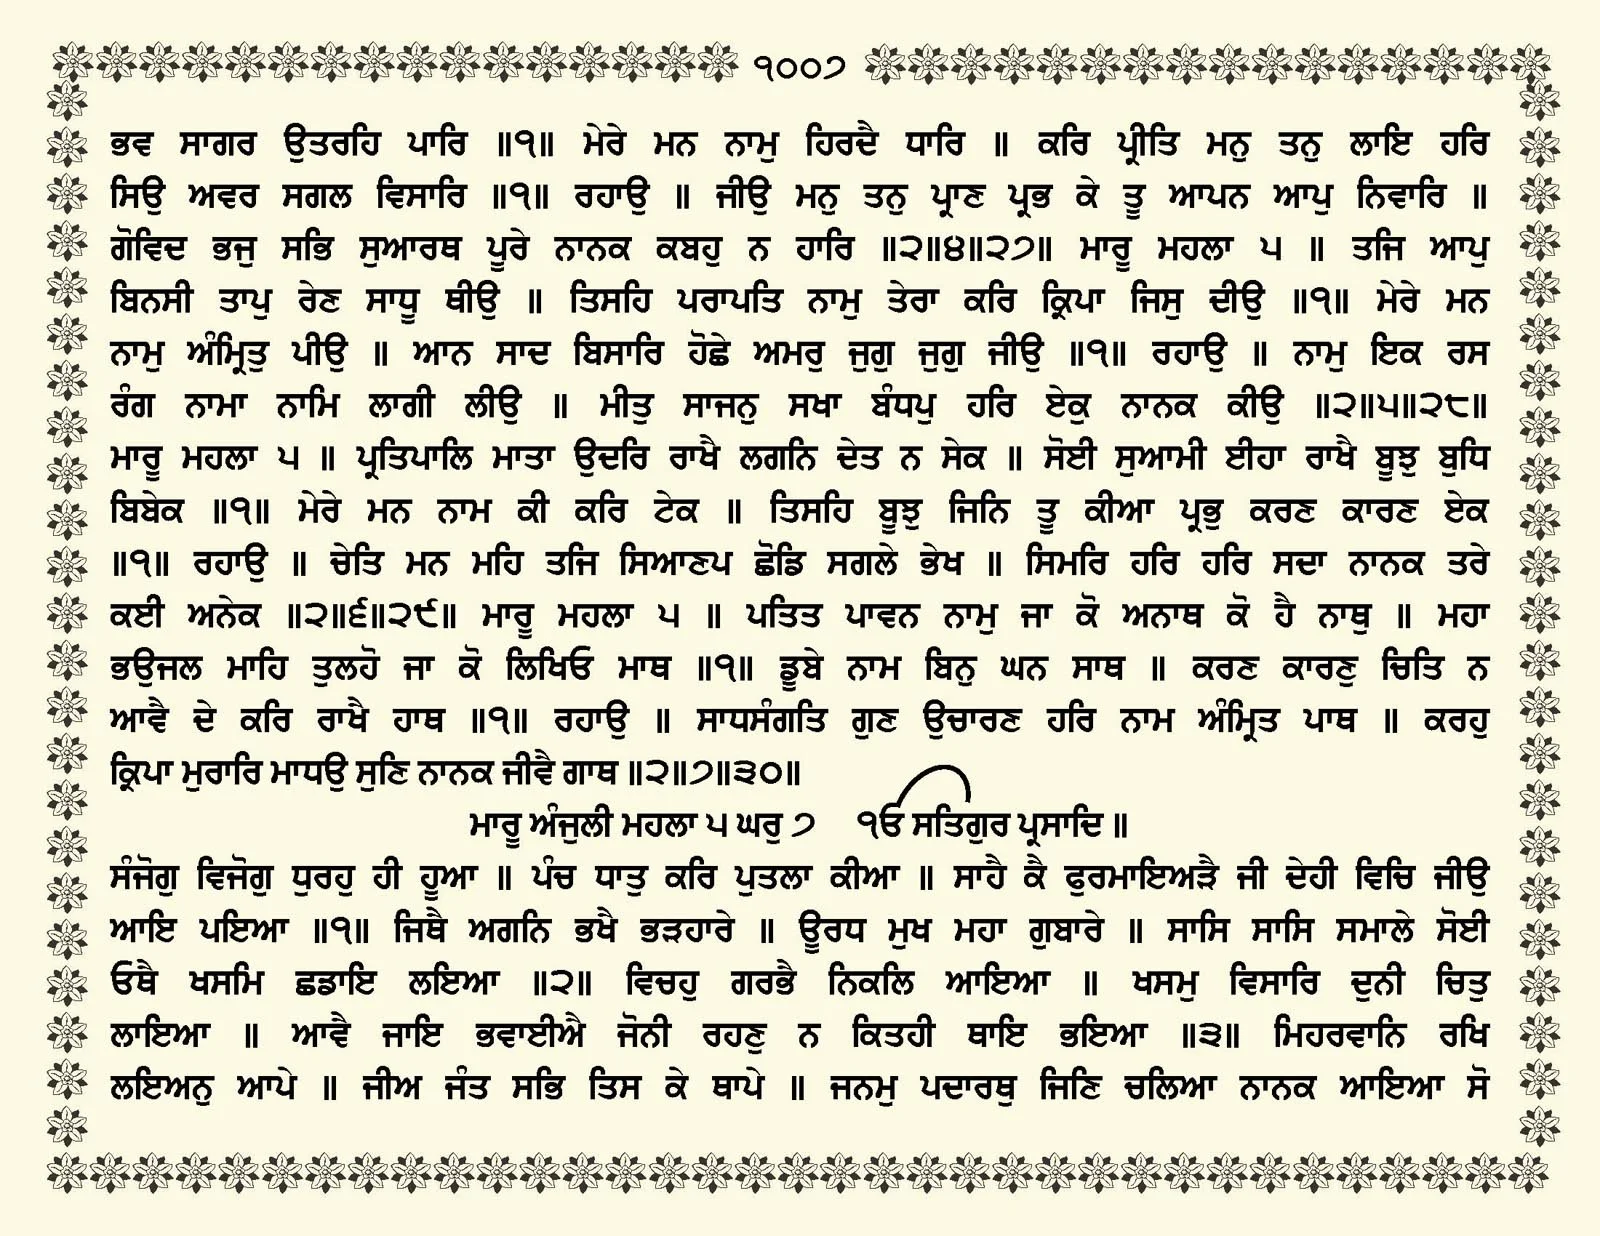 ੧੦੦੭
ਭਵ ਸਾਗਰ ਉਤਰਹਿ ਪਾਰਿ ॥੧॥ ਮੇਰੇ ਮਨ ਨਾਮੁ ਹਿਰਦੈ ਧਾਰਿ ॥ ਕਰਿ ਪ੍ਰੀਤਿ ਮਨੁ ਤਨੁ ਲਾਇ ਹਰਿ
ਸਿਉ ਅਵਰ ਸਗਲ ਵਿਸਾਰਿ ॥੧॥ ਰਹਾਉ ॥ ਜੀਉ ਮਨੁ ਤਨੁ ਪ੍ਰਾਣ ਪ੍ਰਭ ਕੇ ਤੂ ਆਪਨ ਆਪੁ ਨਿਵਾਰਿ ॥
ਗੋਵਿਦ ਭਜੁ ਸਭਿ ਸੁਆਰਥ ਪੂਰੇ ਨਾਨਕ ਕਬਹੁ ਨ ਹਾਰਿ ॥੨॥੪॥੨੭॥ ਮਾਰੂ ਮਹਲਾ ੫ ॥ ਤਜਿ ਆਪੁ
ਬਿਨਸੀ ਤਾਪੁ ਰੇਣ ਸਾਧੂ ਥੀਉ ॥ ਤਿਸਹਿ ਪਰਾਪਤਿ ਨਾਮੁ ਤੇਰਾ ਕਰਿ ਕ੍ਰਿਪਾ ਜਿਸੁ ਦੀਉ ॥੧॥ ਮੇਰੇ ਮਨ
ਨਾਮੁ ਅੰਮ੍ਰਿਤੁ ਪੀਉ ॥ ਆਨ ਸਾਦ ਬਿਸਾਰਿ ਹੋਛੇ ਅਮਰੁ ਜੁਗੁ ਜੁਗੁ ਜੀਉ ॥੧॥ ਰਹਾਉ ॥ ਨਾਮੁ ਇਕ ਰਸ
ਰੰਗ ਨਾਮਾ ਨਾਮਿ ਲਾਗੀ ਲੀਉ ॥ ਮੀਤੁ ਸਾਜਨੁ ਸਖਾ ਬੰਧਪੁ ਹਰਿ ਏਕੁ ਨਾਨਕ ਕੀਉ ॥੨॥੫॥੨੮॥
ਮਾਰੂ ਮਹਲਾ ੫ ॥ ਪ੍ਰਤਿਪਾਲਿ ਮਾਤਾ ਉਦਰਿ ਰਾਖੈ ਲਗਨਿ ਦੇਤ ਨ ਸੇਕ ॥ ਸੋਈ ਸੁਆਮੀ ਈਹਾ ਰਾਖੈ ਬੂਝੁ ਬੁਧਿ
ਬਿਬੇਕ ॥੧॥ ਮੇਰੇ ਮਨ ਨਾਮ ਕੀ ਕਰਿ ਟੇਕ ॥ ਤਿਸਹਿ ਬੂਝੁ ਜਿਨਿ ਤੂ ਕੀਆ ਪ੍ਰਭੁ ਕਰਣ ਕਾਰਣ ਏਕ
॥੧॥ ਰਹਾਉ ॥ ਚੇਤਿ ਮਨ ਮਹਿ ਤਜਿ ਸਿਆਣਪ ਛੋਡਿ ਸਗਲੇ ਭੇਖ ॥ ਸਿਮਰਿ ਹਰਿ ਹਰਿ ਸਦਾ ਨਾਨਕ ਤਰੇ
ਕਈ ਅਨੇਕ ॥੨॥੬॥੨੯॥ ਮਾਰੂ ਮਹਲਾ ੫ ॥ ਪਤਿਤ ਪਾਵਨ ਨਾਮੁ ਜਾ ਕੋ ਅਨਾਥ ਕੋ ਹੈ ਨਾਥੁ ॥ ਮਹਾ
ਭਉਜਲ ਮਾਹਿ ਤੁਲਹੋ ਜਾ ਕੋ ਲਿਖਿਓ ਮਾਥ ॥੧॥ ਡੂਬੇ ਨਾਮ ਬਿਨੁ ਘਨ ਸਾਥ ॥ ਕਰਣ ਕਾਰਣੁ ਚਿਤਿ ਨ
ਆਵੈ ਦੇ ਕਰਿ ਰਾਖੈ ਹਾਥ ॥੧॥ ਰਹਾਉ ॥ ਸਾਧਸੰਗਤਿ ਗੁਣ ਉਚਾਰਣ ਹਰਿ ਨਾਮ ਅੰਮ੍ਰਿਤ ਪਾਥ ॥ ਕਰਹੁ
ਕ੍ਰਿਪਾ ਮੁਰਾਰਿ ਮਾਧਉ ਸੁਣਿ ਨਾਨਕ ਜੀਵੈ ਗਾਥ ॥੨॥੭॥੩੦॥
ਮਾਰੂ ਅੰਜੁਲੀ ਮਹਲਾ ੫ ਘਰੁ ੭ ੴ ਸਤਿਗੁਰ ਪ੍ਰਸਾਦਿ ॥
ਸੰਜੋਗੁ ਵਿਜੋਗੁ ਧੁਰਹੁ ਹੀ ਹੂਆ ॥ ਪੰਚ ਧਾਤੁ ਕਰਿ ਪੁਤਲਾ ਕੀਆ ॥ ਸਾਹੈ ਕੈ ਫੁਰਮਾਇਅੜੈ ਜੀ ਦੇਹੀ ਵਿਚਿ ਜੀਉ
ਆਇ ਪਇਆ ॥੧॥ ਜਿਥੈ ਅਗਨਿ ਭਖੈ ਭੜਹਾਰੇ ॥ ਊਰਧ ਮੁਖ ਮਹਾ ਗੁਬਾਰੇ ॥ ਸਾਸਿ ਸਾਸਿ ਸਮਾਲੇ ਸੋਈ
ਓਥੈ ਖਸਮਿ ਛਡਾਇ ਲਇਆ ॥੨॥ ਵਿਚਹੁ ਗਰਭੈ ਨਿਕਲਿ ਆਇਆ ॥ ਖਸਮੁ ਵਿਸਾਰਿ ਦੁਨੀ ਚਿਤੁ
ਲਾਇਆ ॥ ਆਵੈ ਜਾਇ ਭਵਾਈਐ ਜੋਨੀ ਰਹਣੁ ਨ ਕਿਤਹੀ ਥਾਇ ਭਇਆ ॥੩॥ ਮਿਹਰਵਾਨਿ ਰਖਿ
ਲਇਅਨੁ ਆਪੇ ॥ ਜੀਅ ਜੰਤ ਸਭਿ ਤਿਸ ਕੇ ਥਾਪੇ ॥ ਜਨਮੁ ਪਦਾਰਥੁ ਜਿਣਿ ਚਲਿਆ ਨਾਨਕ ਆਇਆ ਸੋ